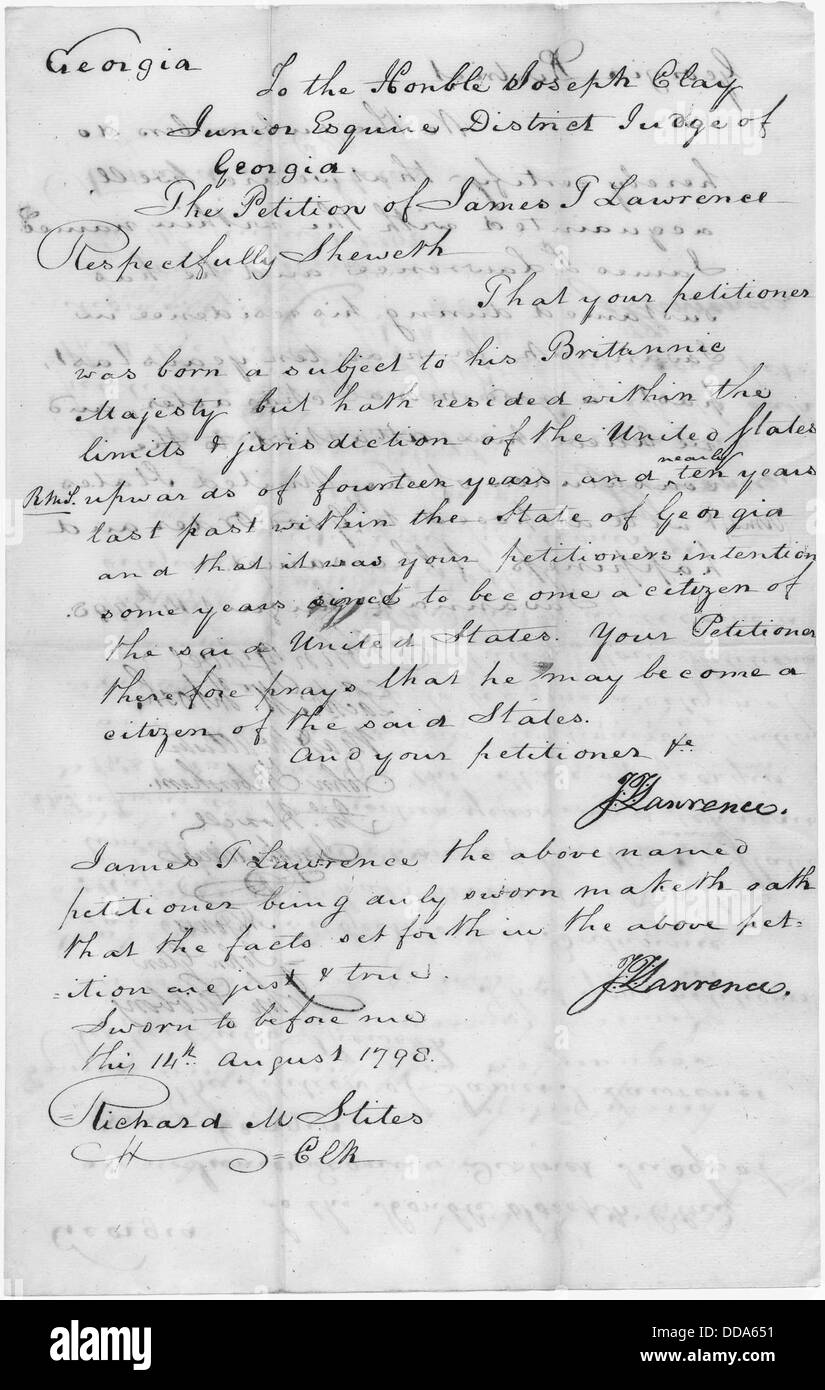 Georgia
To the Honble Joseph Clay
Junior Esquire District Judge of
Georgia
The Petition of James T Lawrence
Respectfully Sheweth
That your petitioner
was born a subject to his Britannic
Majesty but hath resided within the
limits & jurisdiction of the United States
nearly
R M S. upwards of fourteen years and ten years
last past within the State of Georgia
and that it was your petitioners intention
some years since to become a citizen of
the said United States. Your Petitioner
therefore prays that he may become a
citizen of the said States.
And your petitioner &c
J.T. Lawrence.
James T Lawrence the above named
petitioner being duly sworn maketh oath
that the facts set forth in the above pet=
=ition are just & true.
J.T. Lawrence.
Sworn to before me
this 14th August 1798.
Richard M Stites
Clk
alamy
alamy
www.alamy.com
DDA651